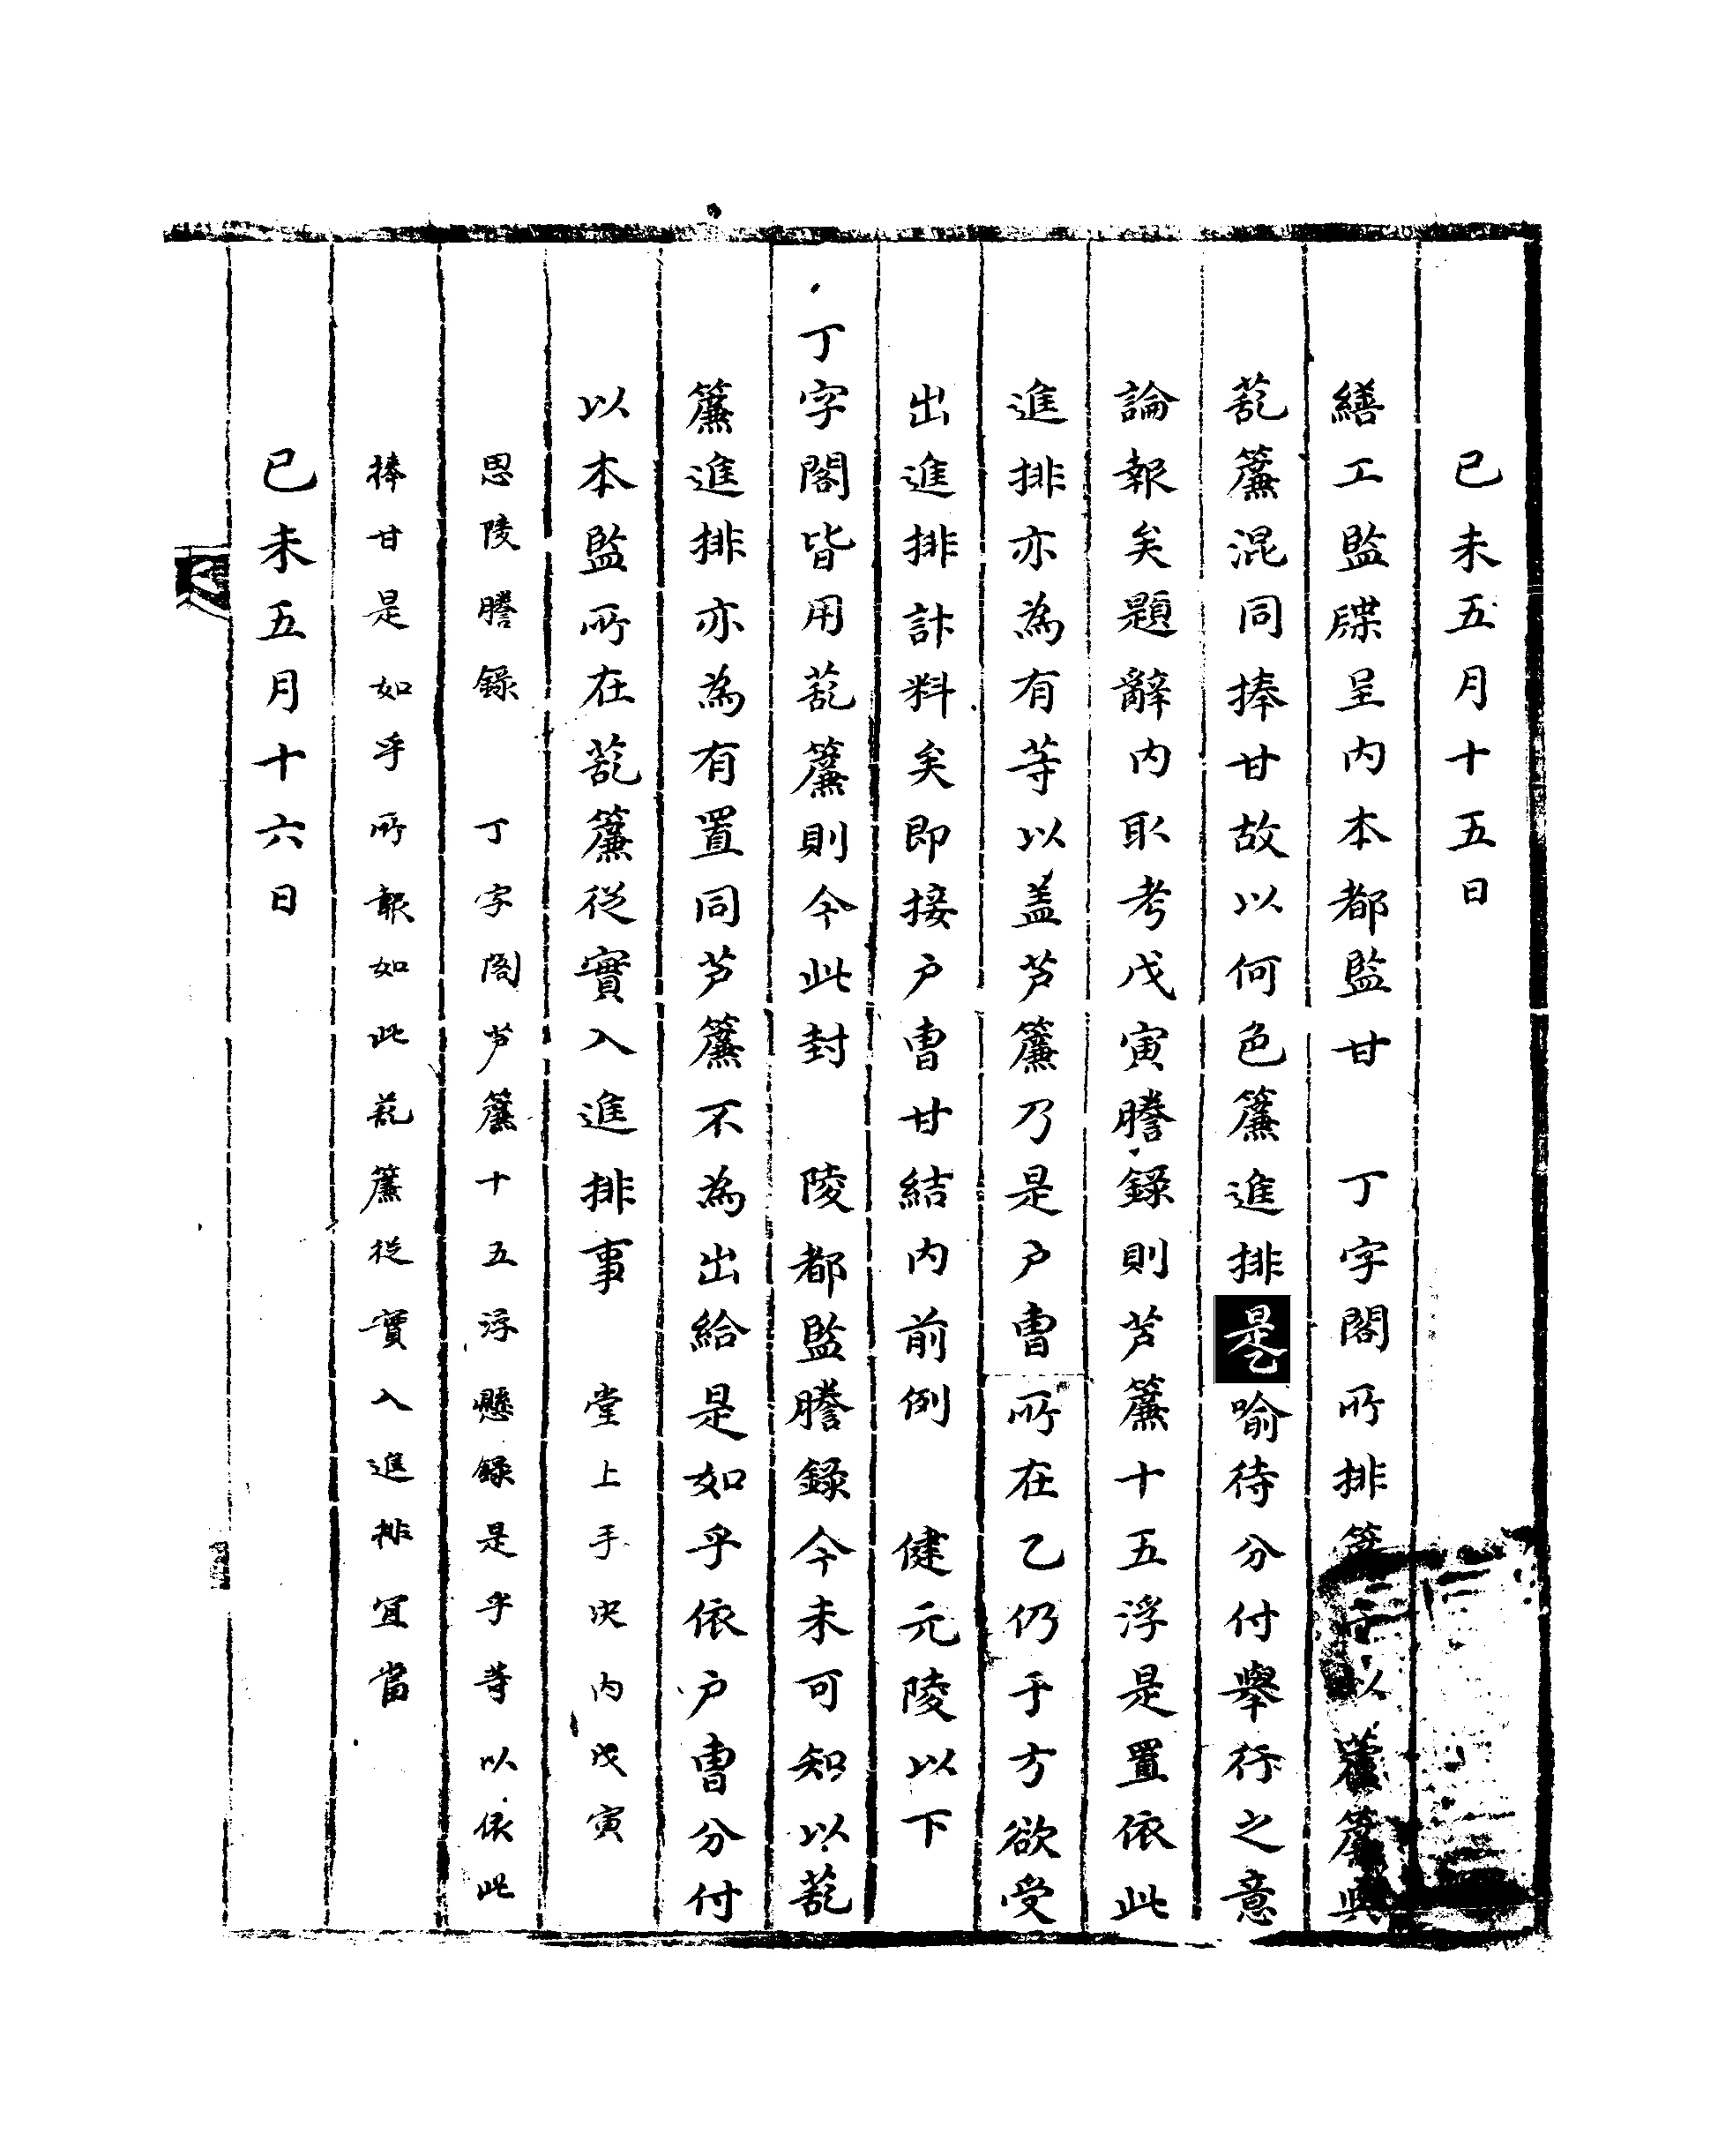 己未五月十五日
繕工監牒呈內本都監甘 丁字閣所排簾子以萑簾與
薍簾混同捧甘故以何色簾進排是乙喩待分付擧行之意
論報矣題辭內取考戊寅謄錄則芦簾十五浮是置依此
進排亦為有等以盖芦簾乃是戶曹所在乙仍于方欲受
出進排計料矣即接戶曹甘結內前例 健元陵以下
丁字閣皆用薍簾則今此封 陵都監謄錄今未可知以薍
簾進排亦為有置同芦簾不為出給是如乎依戶曹分付
以本監所在薍簾從實入進排事 堂上手决內戊寅
思陵謄錄 丁字閣芦簾十五浮懸錄是乎等以依此
捧甘是如乎所報如此薍簾從實入進排宜當
己未五月十六日